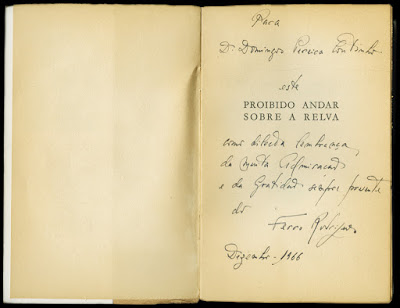 Para
Dr. Domingos Pereira Coutinho
este
PROIBIDO ANDAR
SOBRE A RELVA
como lembrança,
da muita Admiração
e da Gratidão sempre presente
do
Dezembro - 1966